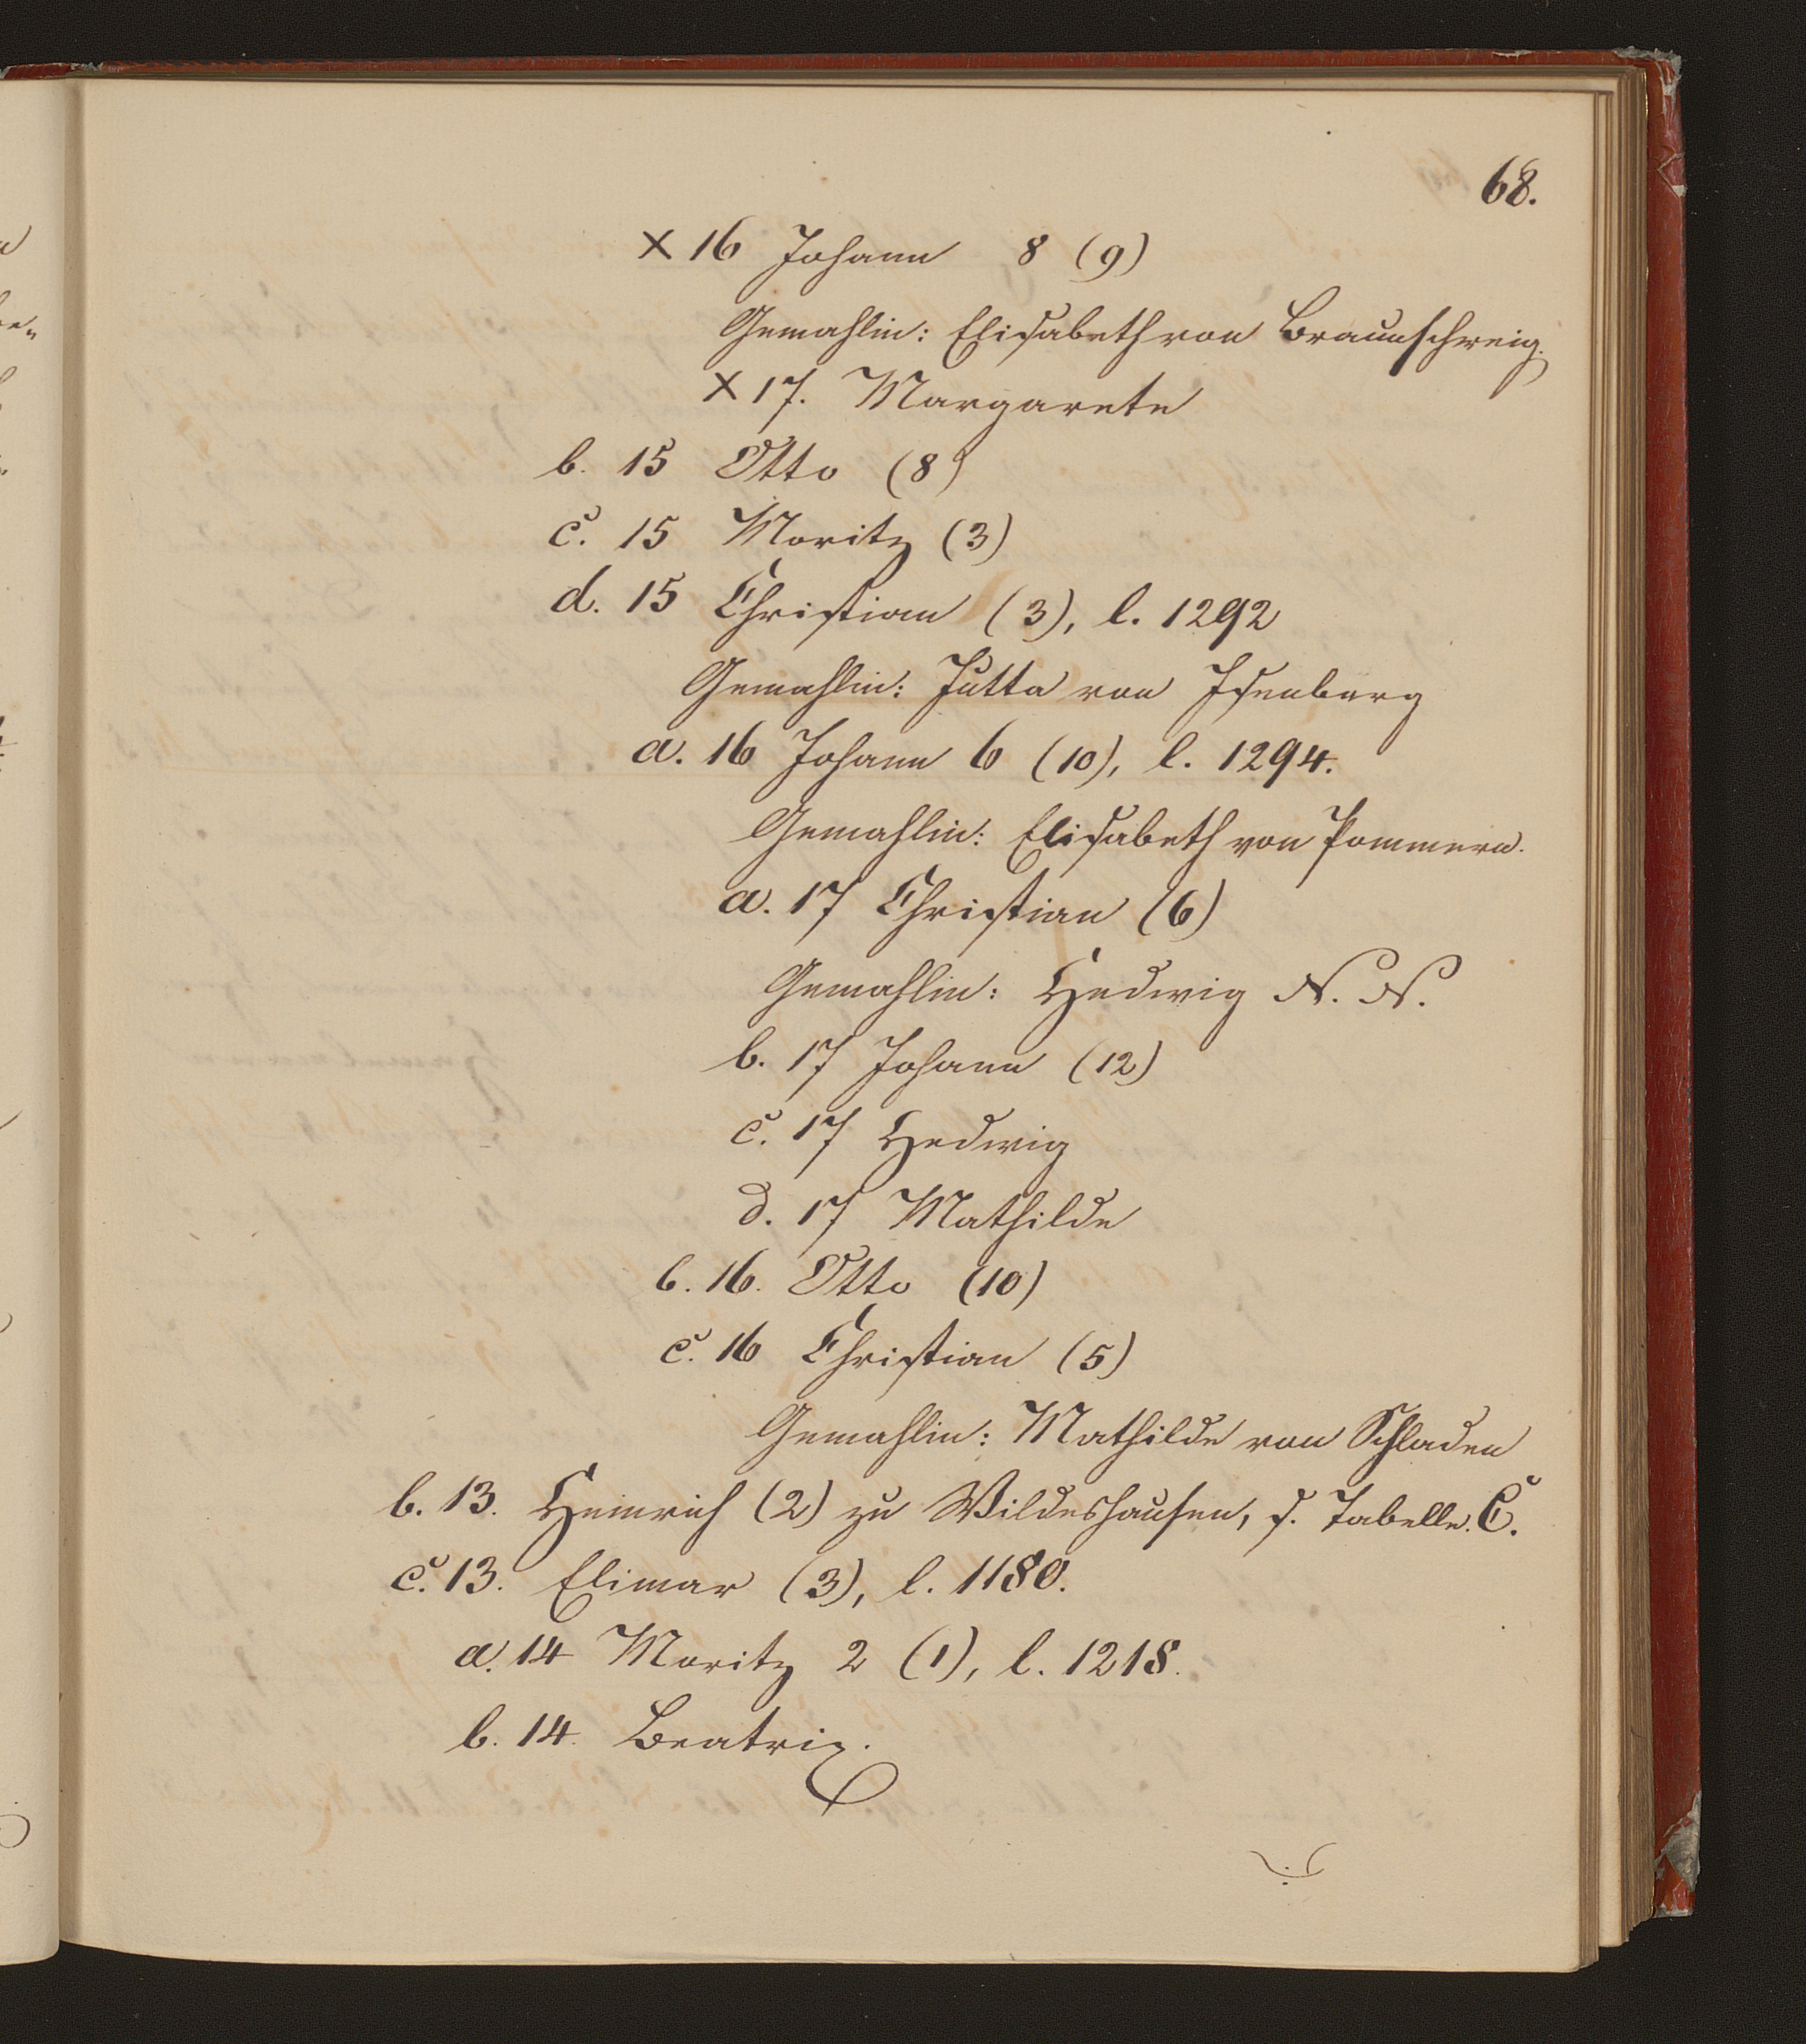 68.
× 16 Johann 8 (9)
Gemahlin: Elisabeth von Braunschweig.
× 17. Margarete
b. 15 Otto (8)
c. 15 Moritz (3)
d. 15 Christian (3), l. 1292
Gemahlin: Jutta von Isenburg
a. 16 Johann 6 (10), l. 1294.
Gemahlin: Elisabeth von Pommern.
a. 17 Christian (6)
Gemahlin: Hedwig N. N.
b. 17 Johann (12)
c. 17 Hedwig
d. 17 Mathilde
b. 16. Otto (10)
c. 16 Christian (5)
Gemahlin: Mathilde von Schladen
b. 13. Heinrich (2) zu Wildeshausen, s. Tabelle. C.
c. 13. Elimar (3), l. 1180.
a. 14 Moritz 2 (1), l. 1218.
b. 14. Beatrix.